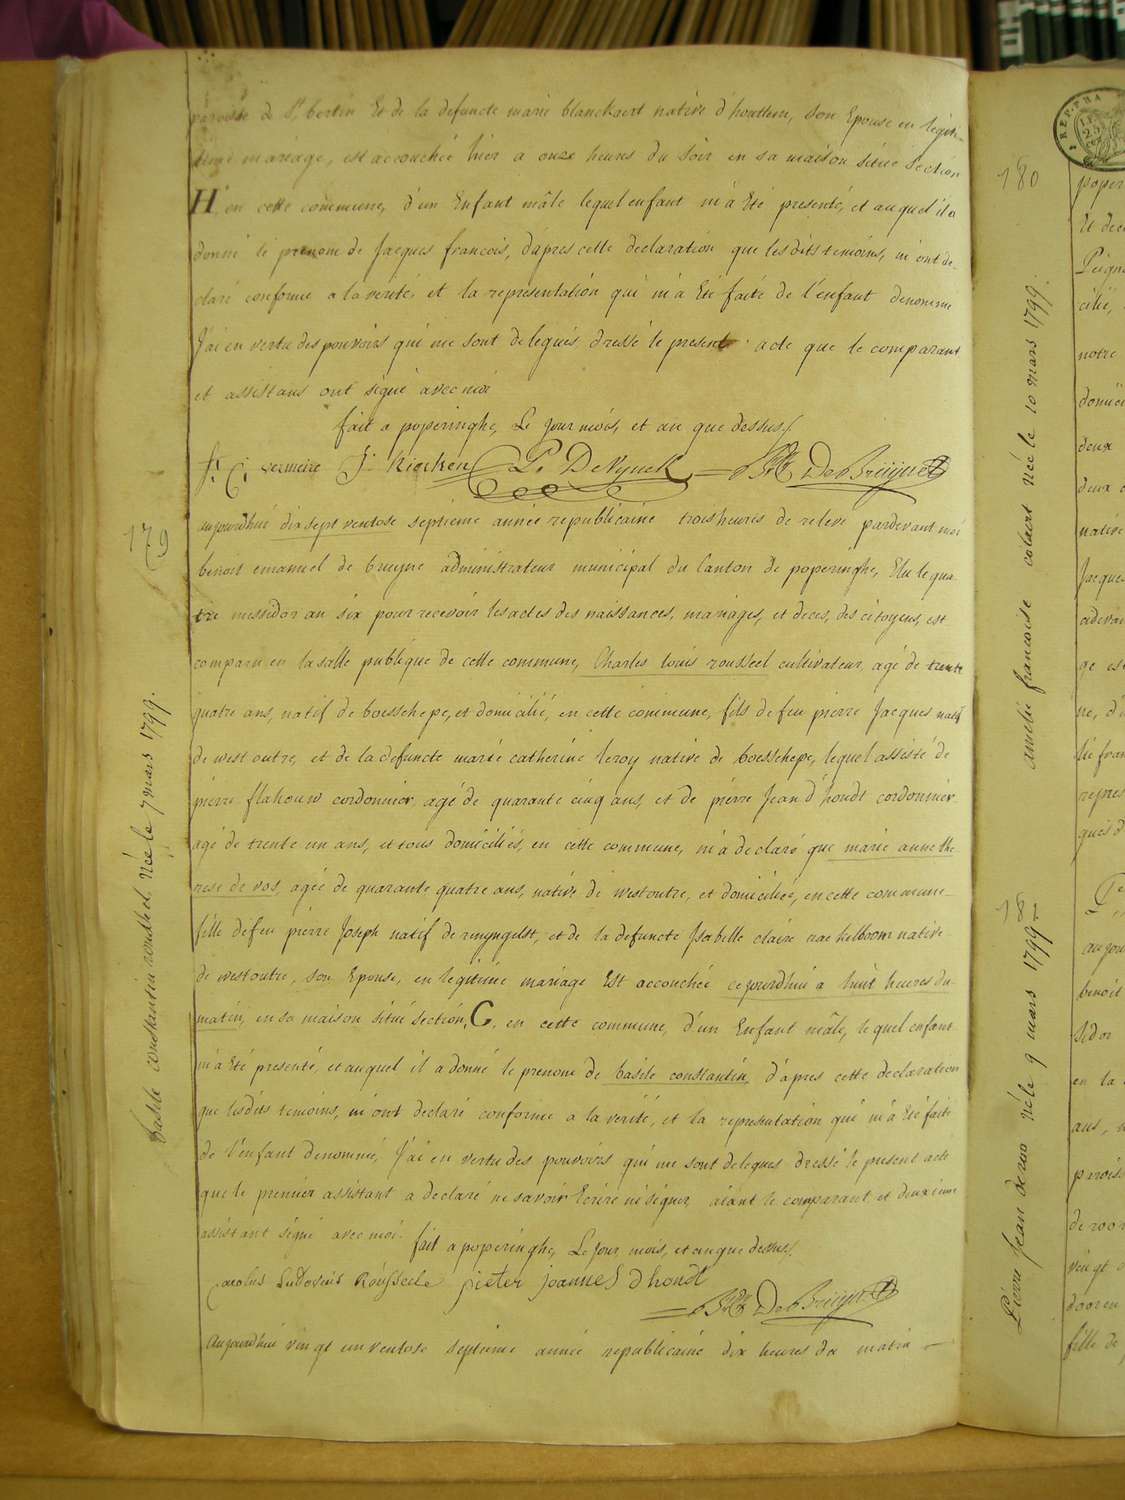 paroisse de St bertin Et de la defuncte marie blanckaert native d'houttem, son Epouse en légiti-
time mariage, est accouchée hier a onze heures du soir en sa maison située Section
H. en cette commune, d'un Enfant mâle lequel enfant m'a Eté presenté, et auquel il a
donné le prenom de Jacques francois, d'apres cette declaration que les dits temoins, m'ont de-
claré conforme a la verité, et la representation qui m'a Eté faite de l'enfant denommé
J'ai en vertu des pouvoirs qui me sont delegués dressé le present acte que le comparant
et assistans ont signé avec moi
fait a poperinghe, Le jour mois, et an que dessus/.
vermeire J. Kiecken P. De Nynck DeBruyne
179
aujourdhui dix sept ventose septieme année republicaine trois heures de relevé pardevant moi
benoit emanuel de bruyne administrateur municipal du Canton de poperinghe, Elu le qua-
tre messidor an six pour recevoir les actes des naissances, mariages, et deces, des citoyens, est
comparu en la salle publique de cette commune, Charles louis rousseel cultivateur, agé de trente
quatre ans, natif de boesschepe, et domicilié, en cette commune, fils de feu pierre Jacques natif
de westoutre, et de la defuncte marie catherine leroy native de boesschepe, lequel assisté de
pierre flahouw cordonnier, agé de quarante cinq ans, et de pierre Jean d'hondt cordonnier
agé de trente un ans, et tous domiciliés, en cette commune, m'a declaré que marie anne the
rese de vos, agée de quarante quatre ans, native de westoutre, et domiciliée, en cette commune
fille de feu pierre Joseph natif de renyngelst, et de la defuncte Isabelle claire native
de westoutre, son Epouse, en legitime mariage Est accouchée cejourdhui a huit heures du
matin, en sa maison située section, C, en cette commune, d'un Enfant mâle, lequel enfant
m'a Eté presenté, et auquel il a donné le prenom de basile constantin, d'apres cette declaration
que lesdits temoins, m'ont declaré conforme a la verité, et la representation qui m'a Eté faite
de l'enfant denommé, J'ai en vertu des pouvoirs qui me sont delegues dressé le present acte
que le premier assistant a declaré ne savoir Ecrire ni signer, aiant le comparant et deuxieme
assistant signé avec moi. fait a poperinghe, Le jour, mois, et an que dessus/.
Carolus Ludovicus Rousseele pieter joannes d hondt
DeBruyne
Aujourdhui vingt un ventose septieme année republicaine dix heures du matin
basile constantin rousseel née le 7 mars 1799.
180
amelie francoise colaert née le 10 mars 1799.
18
Pierre Jean née le 9 mars 1799
poper
Et
cilié,
notre
domici
deux
deux
native
Jacques
ge es
ne, d'
repres
qués d
aujour
benoit
sidor
en la
ans,
parois
de
vingt
dooren
fille de